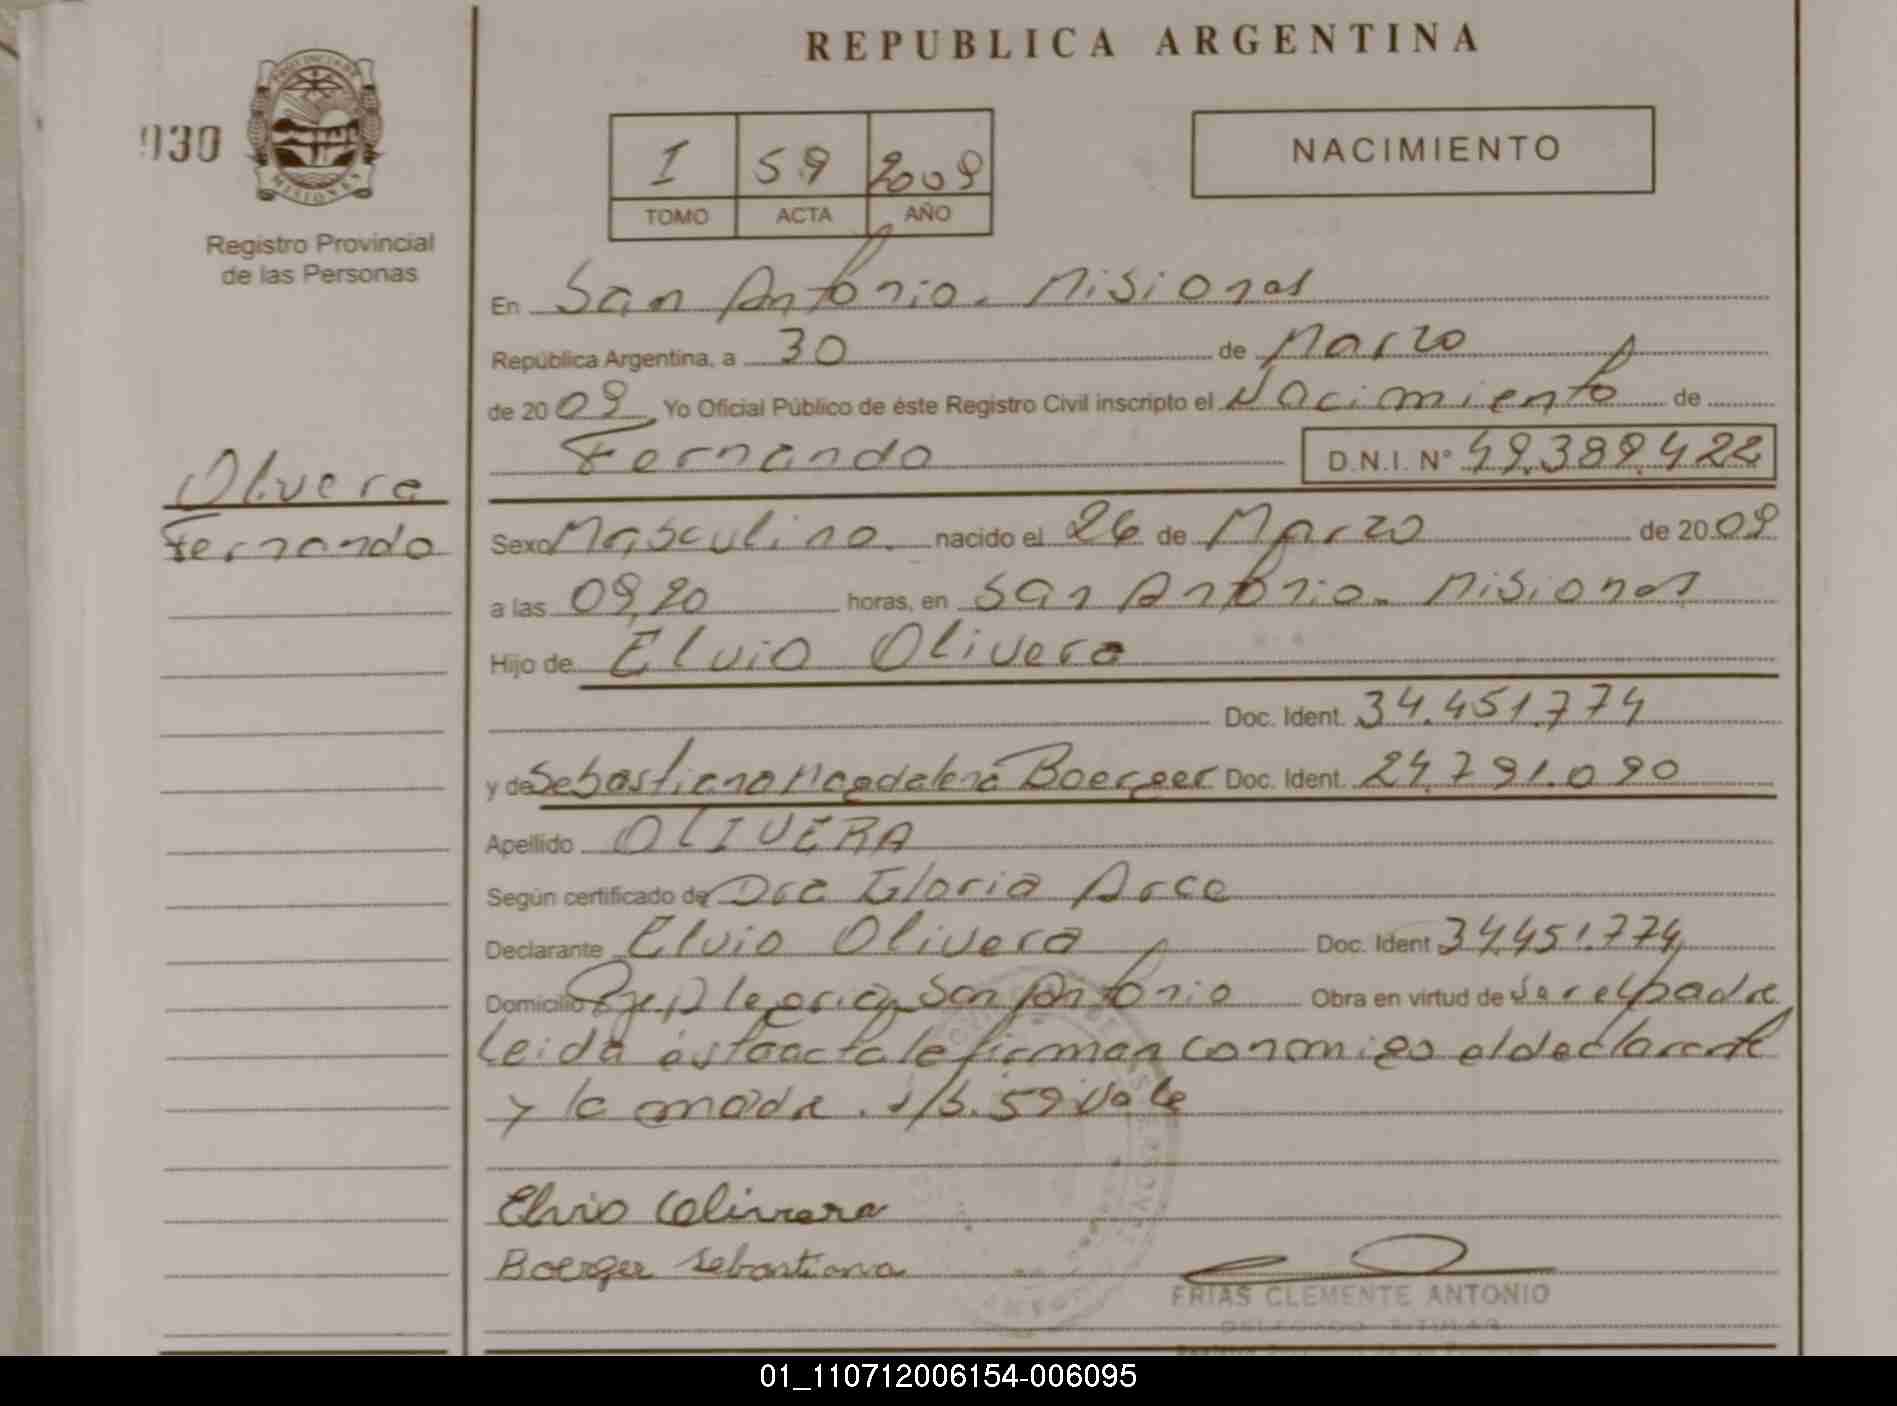 REPUBLICA ARGENTINA
930
PROVINCIA DE
MISIONES
Registro Provincial
de las Personas
I 59 2009
TOMO ACTA AÑO
NACIMIENTO
En San Antonio. Misiones
República Argentina, a 30 de Marzo
de 2009 Yo Oficial Público de éste Registro Civil inscripto el Nacimiento de
Fernando D.N.I. N° 49.389.422
Olivera
Fernando
Sexo Masculino. nacido el 26 de Marzo de 2009
a las 09,20 horas, en San Antonio. Misiones
Hijo de Elvio Olivera
Doc. Ident. 34.451.774
y de Sebastiana Magdalena Boerger Doc. Ident. 24.791.090
Apellido OLIVERA
Según certificado de Dra Gloria Arce
Declarante Elvio Olivera Doc. Ident 34.451.774
Domicilio San Antonio Obra en virtud de ser el padre
Leida esta acta le firman conmigo el declarante
y la madre. s/b. 59 Vale
Elvio Olivera
Boerger Sebastiana
FRIAS CLEMENTE ANTONIO
DELEGADO TITULAR
01_110712006154-006095